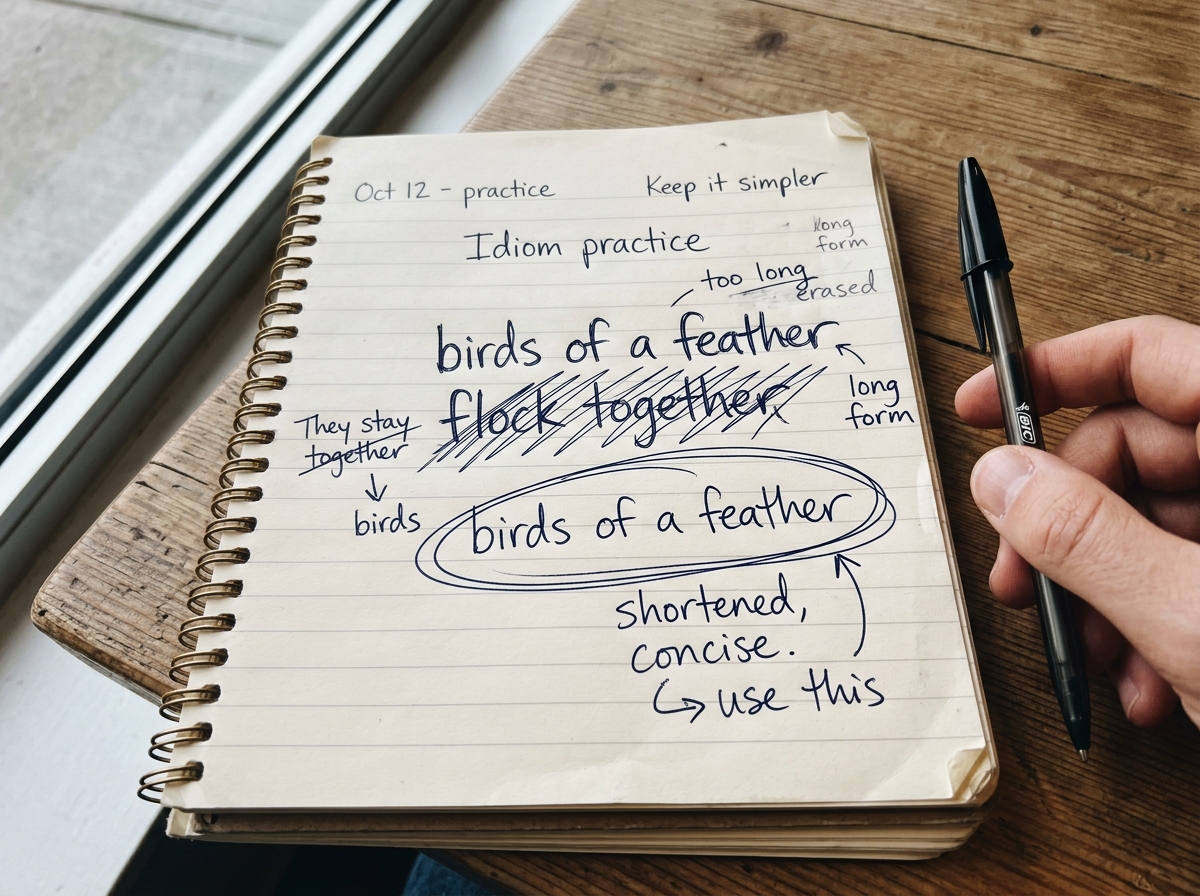 Oct 12 - practice
Keep it simpler
Idiom practice
long
form
too long
erased
birds of a feather
flock together
long
form
They stay
together
birds
birds of a feather
shortened,
concise.
use this
BIC